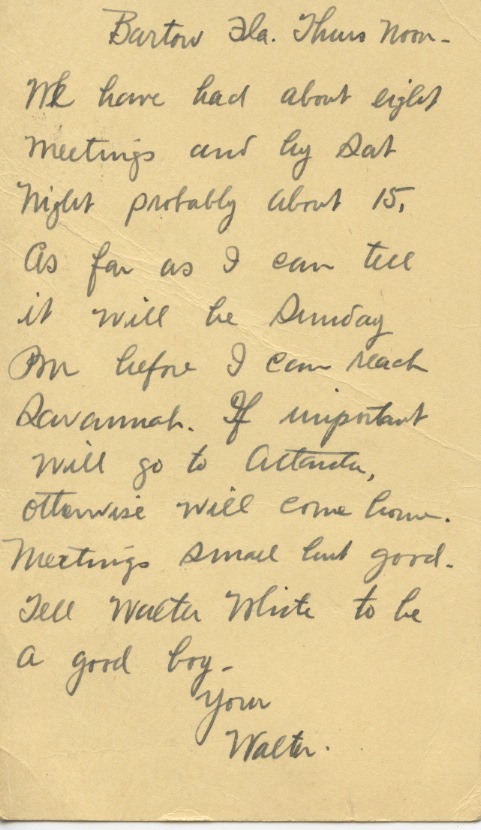 Bartow Fla. Thurs Noon-
We have had about eight
meetings and by Sat
night probably about 15,
As far as I can tell
it will be Sunday
Pm before I can reach
Savannah. If important
will go to Atlanta,
otherwise will come home.
Meetings small but good.
Tell Walter White to be
a good boy-
Your
Walter.